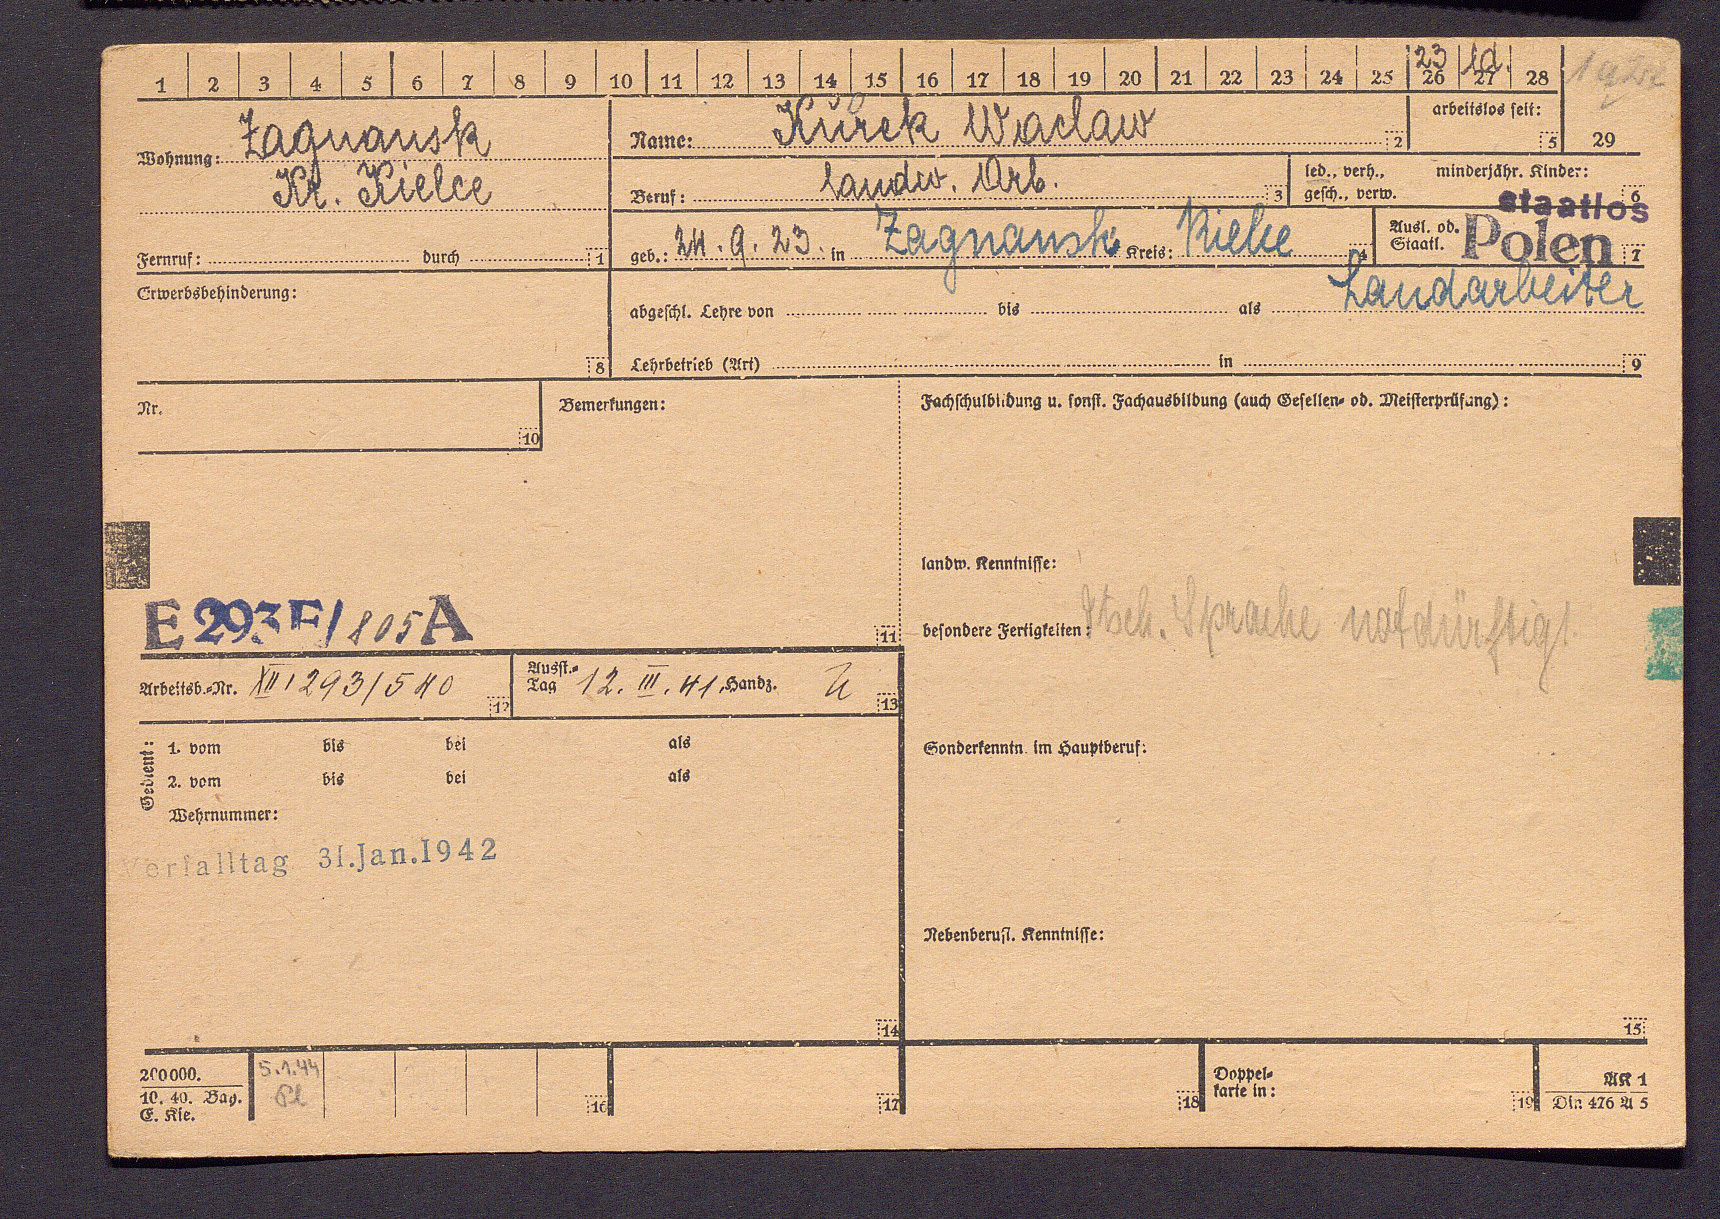 23 Ld.
1 2 3 4 5 6 7 8 9 10 11 12 13 14 15 16 17 18 19 20 21 22 23 24 25 26 27 28
Wohnung: Zagnansk
Kr. Kielce
Fernruf: durch 1
Name: Kurek Waclaw 2
arbeitslos seit: 5
29
Beruf: landw. Arb. 3
led., verh., gesch., verw.
minderjähr. Kinder: 6
staatlos
geb.: 24.9.23. in Zagnansk Kreis: Kielce 4
Ausl. od. Staatl. Polen 7
Erwerbsbehinderung: 8
Landarbeiter
abgeschl. Lehre von bis als
Lehrbetrieb (Art) in 9
Nr. 10
Bemerkungen:
Fachschulbildung u. sonst. Fachausbildung (auch Gesellen- od. Meisterprüfung):
landw. Kenntnisse:
E 293 E/805 A
11
besondere Fertigkeiten: dtsch. Sprache notdürftig!
Arbeitsb.-Nr. XII/293/540 12
Ausst.-Tag 12. III. 41. Handz. 13
Gedient: 1. vom bis bei als
2. vom bis bei als
Wehrnummer:
Sonderkenntn. im Hauptberuf:
Verfalltag 31.Jan.1942
Nebenberufl. Kenntnisse:
14
15
200000.
10. 40. Bag.
E. Kie.
5.1.44
16
17
18
Doppelkarte in: 19
AK 1
Din 476 A 5